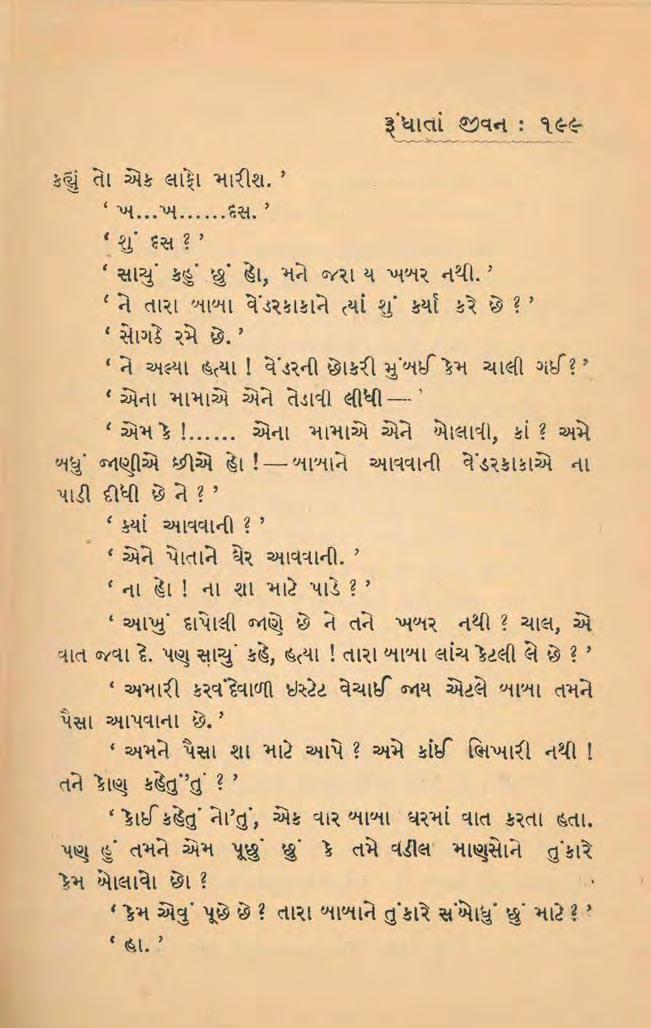 રૂંધાતાં જીવન : ૧૯૯
કહ્યું તો એક લાફો મારીશ. ’
‘ ખ...ખ......દસ. ’
‘ શું દસ ? ’
‘ સાચું કહું છું હો, મને જરા ય ખબર નથી. ’
‘ ને તારા બાબા વેંડરકાકાને ત્યાં શું કર્યા કરે છે ? ’
‘ સોગઠે રમે છે. ’
‘ ને અલ્યા હત્યા ! વેંડરની છોકરી મુંબઈ કેમ ચાલી ગઈ ? ’
‘ એના મામાએ એને તેડાવી લીધી— ’
‘ એમ કે !...... એના મામાએ એને બોલાવી, કાં ? અમે
બધું જાણીએ છીએ હો !—બાબાને આવવાની વેંડરકાકાએ ના
પાડી દીધી છે ને ? ’
‘ ક્યાં આવવાની ? ’
‘ એને પોતાને ઘેર આવવાની. ’
‘ ના હો ! ના શા માટે પાડે ? ’
‘ આખું દાપોલી જાણે છે ને તને ખબર નથી ? ચાલ, એ
વાત જવા દે. પણ સાચું કહે, હત્યા ! તારા બાબા લાંચ કેટલી લે છે ? ’
‘ અમારી કરવંદેવાળી ઇસ્ટેટ વેચાઈ જાય એટલે બાબા તમને
પૈસા આપવાના છે. ’
‘ અમને પૈસા શા માટે આપે ? અમે કાંઈ ભિખારી નથી !
તને કોણ કહેતું’તું ? ’
‘ કોઈ કહેતું નો’તું, એક વાર બાબા ઘરમાં વાત કરતા હતા.
પણ હું તમને એમ પૂછું છું કે તમે વડીલ માણસોને તુંકારે
કેમ બોલાવો છો ?
‘ કેમ એવું પૂછે છે ? તારા બાબાને તુંકારે સંબોધું છું માટે ? ’
‘ હા. ’